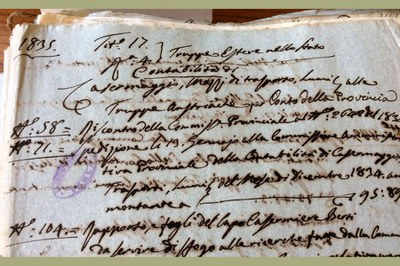 1835. Tit.° 17. } Truppe Estere nello Stato
A.° 4.
Contabilità di
Casermaggio, mezzi di trasporto, lumi, alla
Truppa Austriaca per Conto della Provincia
N.° 58 = Riscontro della Commiss.e Provinciale al N.° del 183
N.° 71. = Spedizione li 13. Gennajo alla Commissione Amministra
tiva Provinciale della Contabilità di Casermaggio
Trasporti, Lumi, del Mese di Dicembre 1834.
montante a 95:89
N.° 104 = Rapporto, e fogli del Capo Casermiere Berti
da servire di sfogo alle ricerche fatte dalla